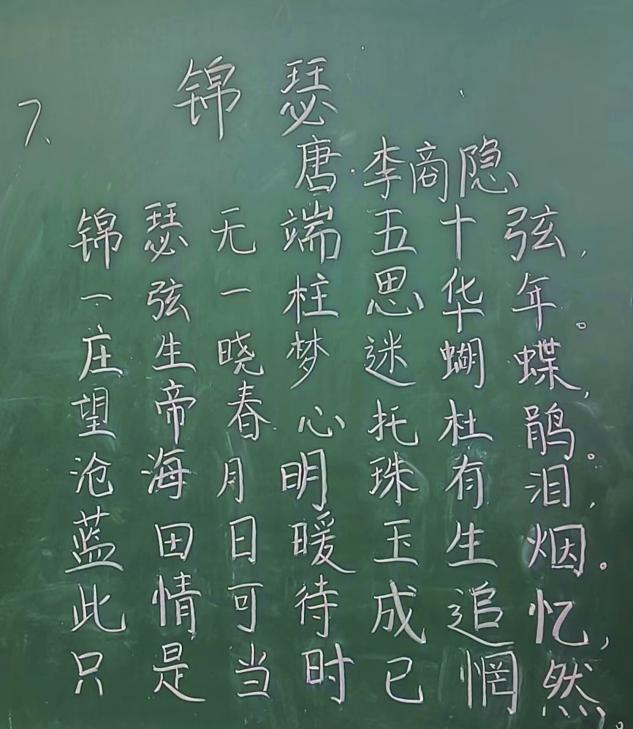 7、
锦瑟
唐·李商隐
锦瑟无端五十弦，
一弦一柱思华年。
庄生晓梦迷蝴蝶，
望帝春心托杜鹃。
沧海月明珠有泪，
蓝田日暖玉生烟。
此情可待成追忆，
只是当时已惘然。